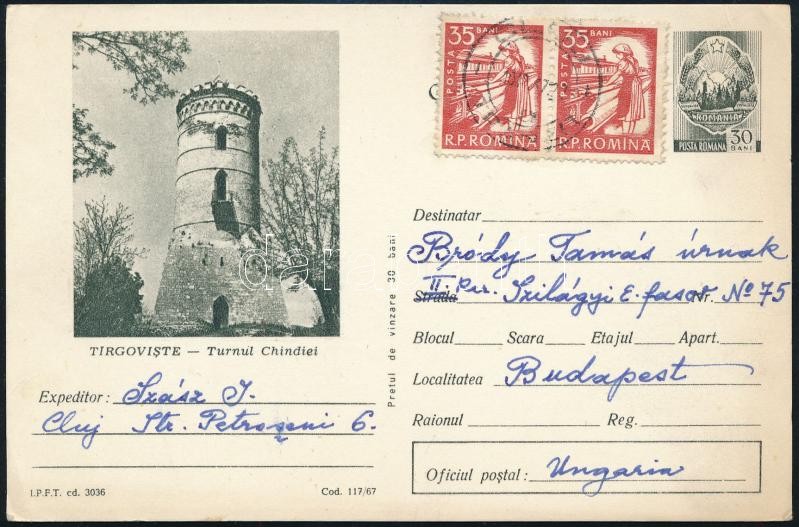 35 BANI
POSTA
R.P.ROMINA
35 BANI
POSTA
R.P.ROMINA
ROMANIA
POSTA ROMANA 30 BANI
TIRGOVIȘTE — Turnul Chindiei
Expeditor: Szász J.
Cluj Str. Petroșeni 6.
I.P.F.T. cd. 3036
Cod. 117/67
Prețul de vinzare 30 bani
Destinatar
Bródy Tamás úrnak
Strada II. ker. Szilágyi E. fasor Nr. No 75
Blocul Scara Etajul Apart.
Localitatea Budapest
Raionul Reg.
Oficiul poștal: Ungaria